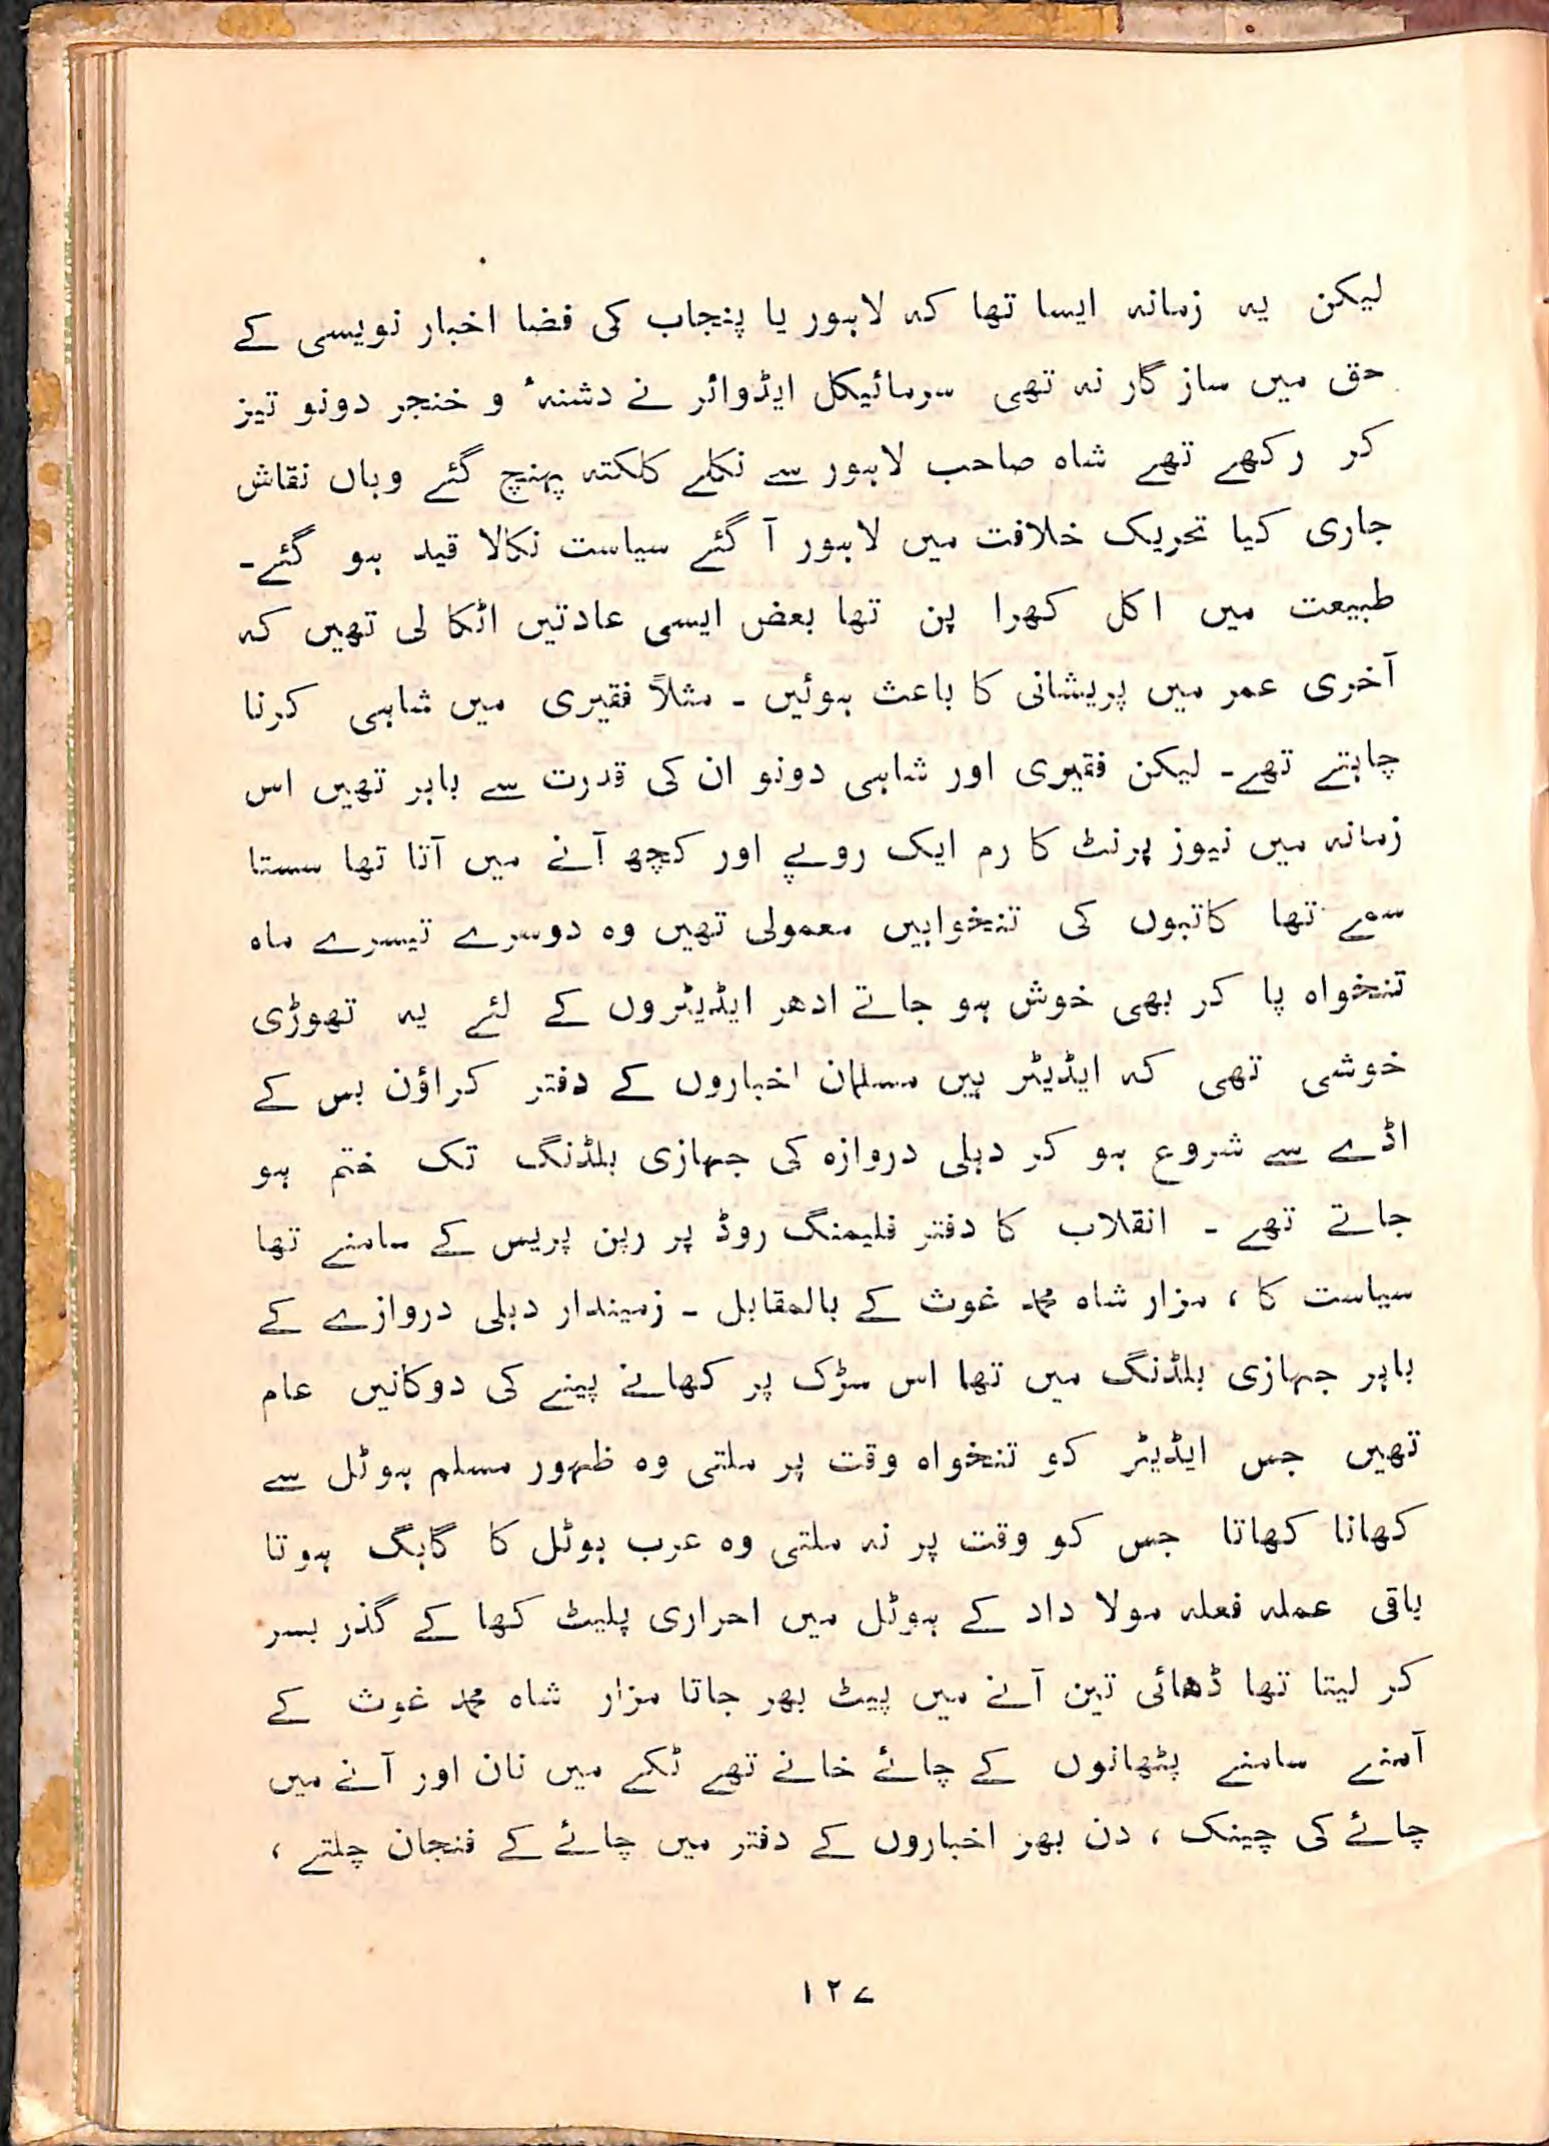 لیکن یہ زمانہ ایسا تھا کہ لاہور یا پنجاب کی فضا اخبار نویسی کے
حق میں ساز گار نہ تھی سرمائیکل ایڈوائر نے دشنہٴ و خنجر دونو تیز
کر رکھے تھے شاہ صاحب لاہور سے نکلے کلکتہ پہنچ گئے وہاں نقاش
جاری کیا تحریک خلافت میں لاہور آ گئے سیاست نکالا قید ہو گئے۔
طبیعت میں اکل کھرا پن تھا بعض ایسی عادتیں اٹکا لی تھیں کہ
آخری عمر میں پریشانی کا باعث ہوئیں ۔ مثلاً فقیری میں شاہی کرنا
چاہتے تھے۔ لیکن فقیری اور شاہی دونو ان کی قدرت سے باہر تھیں اس
زمانہ میں نیوز پرنٹ کا رم ایک روپے اور کچھ آنے میں آتا تھا سستا
سمے تھا کاتبوں کی تنخواہیں معمولی تھیں وہ دوسرے تیسرے ماہ
تنخواہ پا کر بھی خوش ہو جاتے ادھر ایڈیٹروں کے لئے یہ تھوڑی
خوشی تھی کہ ایڈیٹر ہیں مسلمان اخباروں کے دفتر کراؤن بس کے
اڈے سے شروع ہو کر دہلی دروازہ کی جہازی بلڈنگ تک ختم ہو
جاتے تھے ۔ انقلاب کا دفتر فلیمنگ روڈ پر رپن پریس کے سامنے تھا
سیاست کا ، مزار شاہ محمد غوث کے بالمقابل ۔ زمیندار دہلی دروازے کے
باہر جہازی بلڈنگ میں تھا اس سڑک پر کھانے پینے کی دوکانیں عام
تھیں جس ایڈیٹر کو تنخواہ وقت پر ملتی وہ ظہور مسلم ہوٹل سے
کھانا کھاتا جس کو وقت پر نہ ملتی وہ عرب ہوٹل کا گاہگ ہوتا
باقی عملہ فعلہ مولا داد کے ہوٹل میں احراری پلیٹ کھا کے گذر بسر
کر لیتا تھا ڈھائی تین آنے میں پیٹ بھر جاتا مزار شاہ محمد غوث کے
آمنے سامنے پٹھانوں کے چائے خانے تھے ٹکے میں نان اور آنے میں
چائے کی چینک ، دن بھر اخباروں کے دفتر میں چائے کے فنجان چلتے ،
۱۲۷